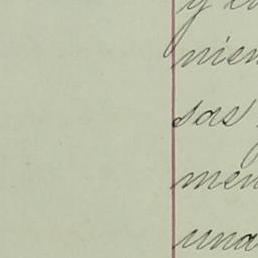 y
nien
sas
men
una